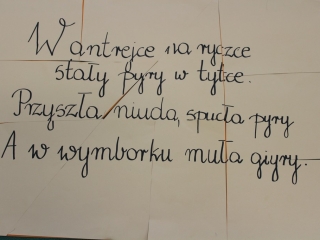 W antrejce na ryczce
stały pyry w tytce.
Przyszła niuda, spucła pyry
A w wymborku myła giyry.